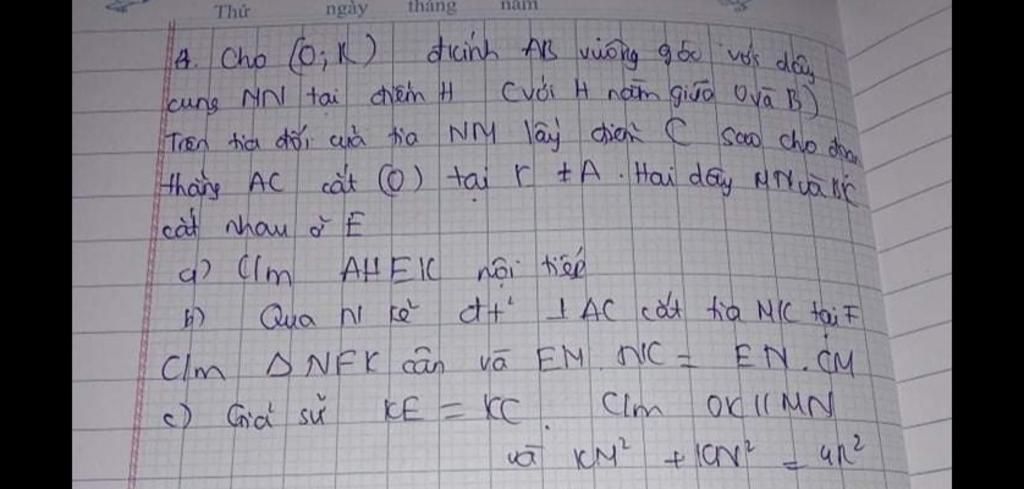 Thứ ngày tháng năm
A. Cho (O; R) đ kính AB vuông góc với dây
cung MN tại điểm H (với H nằm giữa O và B)
Trên tia đối của tia NM lấy điểm C sao cho đoạn
thẳng AC cắt (O) tại K ≠ A. Hai dây MN và BK
cắt nhau ở E
a) C/m AHEK nội tiếp
b) Qua N kẻ đt ⊥ AC cắt tia MK tại F
C/m Δ NFK cân và EM. NC = EN. CM
c) Giả sử KE = KC. C/m OK // MN
và KM² + KN² = 4R²